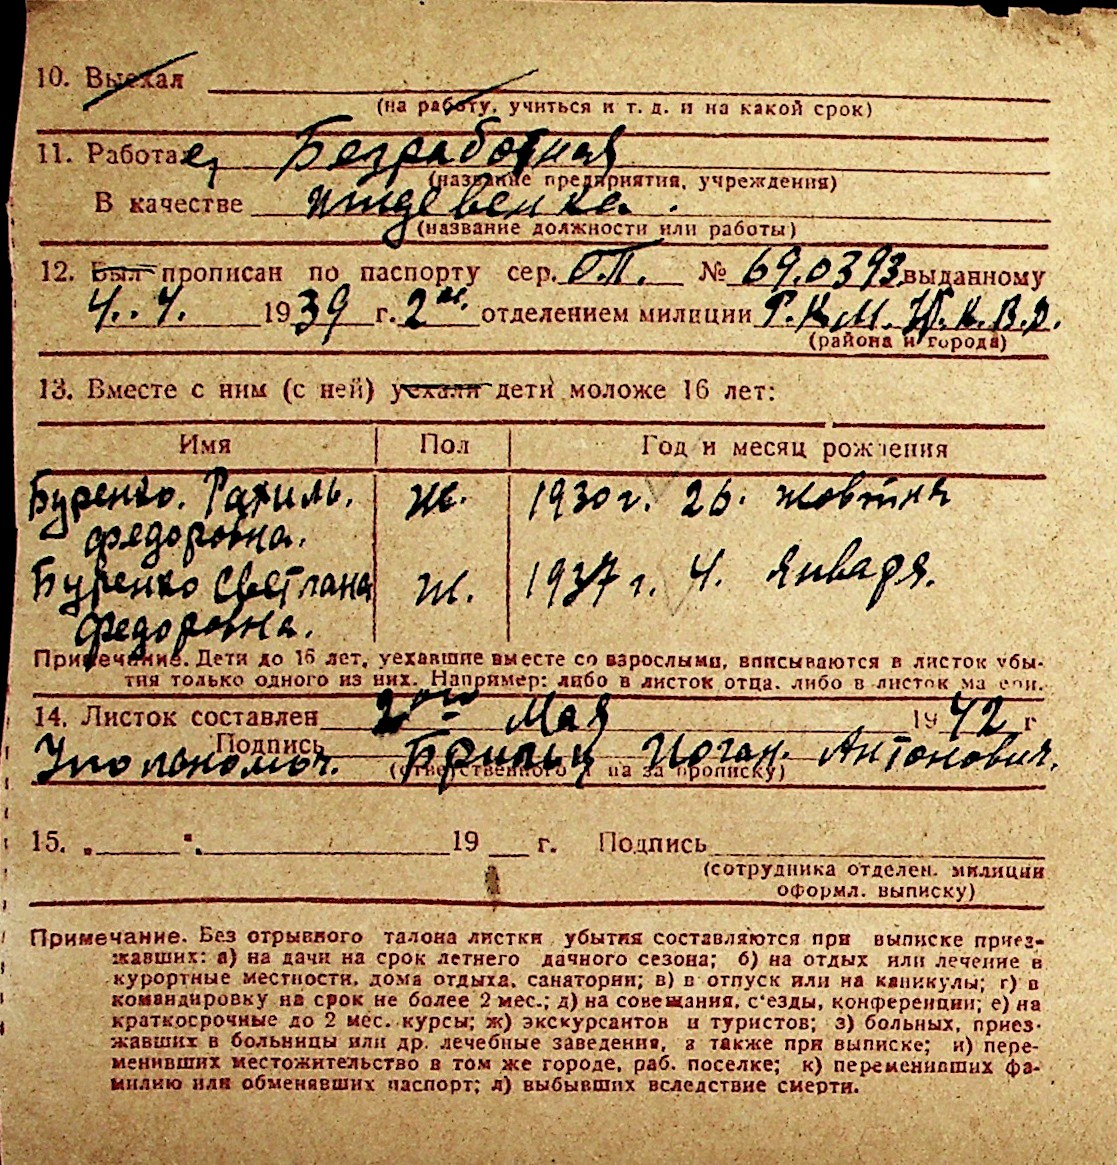 10. Выехал
(на работу, учиться и т. д. и на какой срок)
11. Работает Безработная
(название предприятия, учреждения)
В качестве иждевенка.
(название должности или работы)
12. Был прописан по паспорту сер. О.П. № 69.0393 выданному
4. 4. 1939 г. 2 ым отделением милиции Р.К.М. Н.К.В.Д.
(района и города)
13. Вместе с ним (с ней) уехали дети моложе 16 лет:
Имя Пол Год и месяц рождения
Буренко. Рахиль. Ж. 1930 г. 26. жовтня
федоровна.
Буренко Светлана Ж. 1937 г. 4. января.
федоровна.
Примечание. Дети до 16 лет, уехавшие вместе со взрослыми, вписываются в листок убы-
тия только одного из них. Например: либо в листок отца, либо в листок ма ери.
14. Листок составлен 2ого Мая 1942 г
Подпись
Уполаномоч. Антонович.
(ответственного на за прописку)
15. „ “. 19 г. Подпись
(сотрудника отделен. милиции
оформл. выписку)
Примечание. Без отрывного талона листки убытия составляются при выписке приез-
жавших: а) на дачи на срок летнего дачного сезона; б) на отдых или лечение в
курортные местности, дома отдыха, санатории; в) в отпуск или на каникулы; г) в
командировку на срок не более 2 мес.; д) на совещания, с'езды, конференции; е) на
краткосрочные до 2 мес. курсы; ж) экскурсантов и туристов; з) больных, приез-
жавших в больницы или др. лечебные заведения, а также при выписке; и) пере-
менивших местожительство в том же городе, раб. поселке; к) переменивших фа-
милию или обменявших паспорт; л) выбывших вследствие смерти.